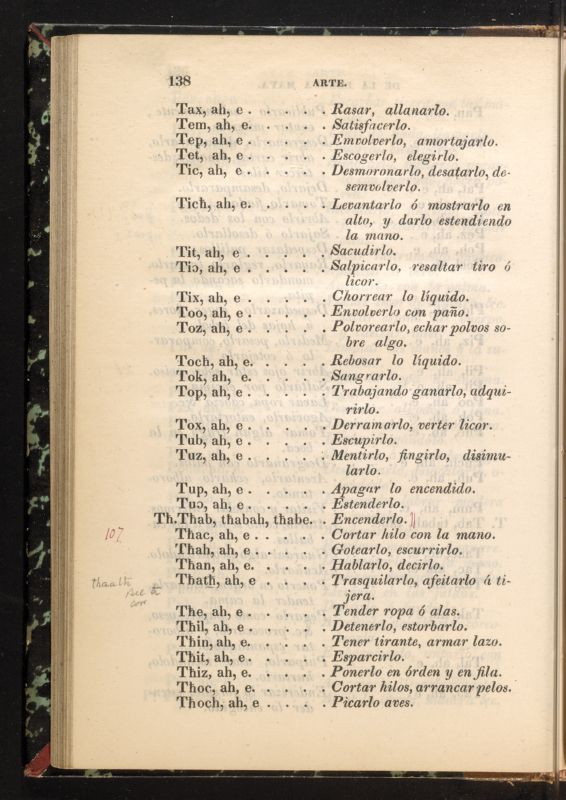 138 ARTE.
Tax, ah, e . . . . . . Rasar, allanarlo.
Tem, ah, e. . . . . . Satisfacerlo.
Tep, ah, e . . . . . . Emvolverlo, amortajarlo.
Tet, ah, e . . . . . . Escogerlo, elegirlo.
Tic, ah, e . . . . . . Desmoronarlo, desatarlo, de-
semvolverlo.
Ticħ, ah, e. . . . . . Levantarlo ó mostrarlo en
alto, y darlo estendiendo
la mano.
Tit, ah, e . . . . . . Sacudirlo.
Tiɔ, ah, e . . . . . . Salpicarlo, resaltar tiro ó
licor.
Tix, ah, e . . . . . . Chorrear lo líquido.
Too, ah, e . . . . . . Envolverlo con paño.
Toz, ah, e . . . . . . Polvorearlo, echar polvos so-
bre algo.
Tocħ, ah, e. . . . . . Rebosar lo líquido.
Tok, ah, e. . . . . . Sangrarlo.
Top, ah, e . . . . . . Trabajando ganarlo, adqui-
rirlo.
Tox, ah, e . . . . . . Derramarlo, verter licor.
Tub, ah, e . . . . . . Escupirlo.
Tuz, ah, e . . . . . . Mentirlo, fingirlo, disimu-
larlo.
Tup, ah, e . . . . . . Apagar lo encendido.
Tuɔ, ah, e . . . . . . Estenderlo.
Tħ. Tħab, tħabah, tħabe. . Encenderlo.
107. Tħac, ah, e . . . . . Cortar hilo con la mano.
Tħah, ah, e . . . . . Gotearlo, escurrirlo.
Tħan, ah, e. . . . . Hablarlo, decirlo.
thaath Tħatħ, ah, e . . . . Trasquilarlo, afeitarlo á ti-
jera.
corr
Tħe, ah, e . . . . . . Tender ropa ó alas.
Tħil, ah, e . . . . . . Detenerlo, estorbarlo.
Tħin, ah, e. . . . . . Tener tirante, armar lazo.
Tħit, ah, e . . . . . . Esparcirlo.
Tħiz, ah, e. . . . . . Ponerlo en órden y en fila.
Tħoc, ah, e. . . . . . Cortar hilos, arrancar pelos.
Tħoch, ah, e . . . . Picarlo aves.